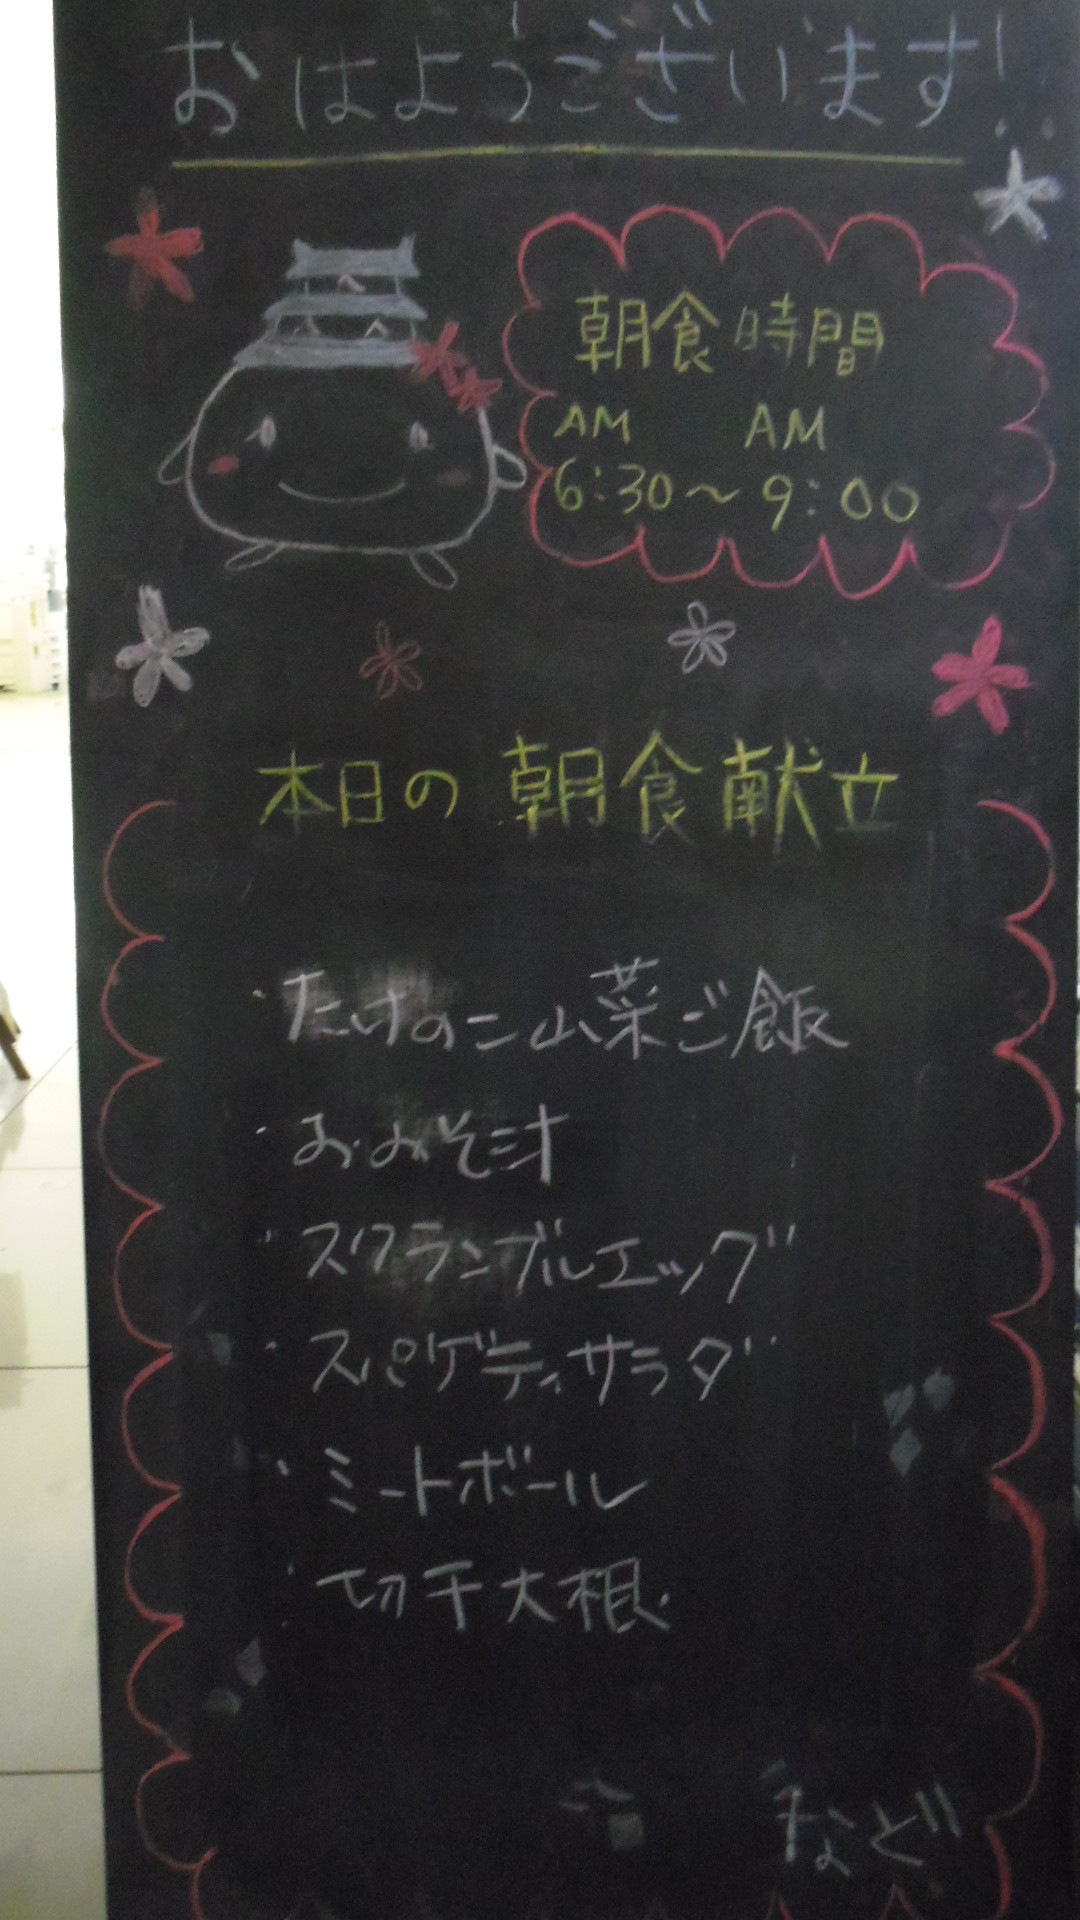 おはようございます!!
朝食時間
AM AM
6:30〜9:00
本日の朝食献立
・たけのこ山菜ご飯
・おみそ汁
・スクランブルエッグ
・スパゲティサラダ
・ミートボール
・切干大根
など